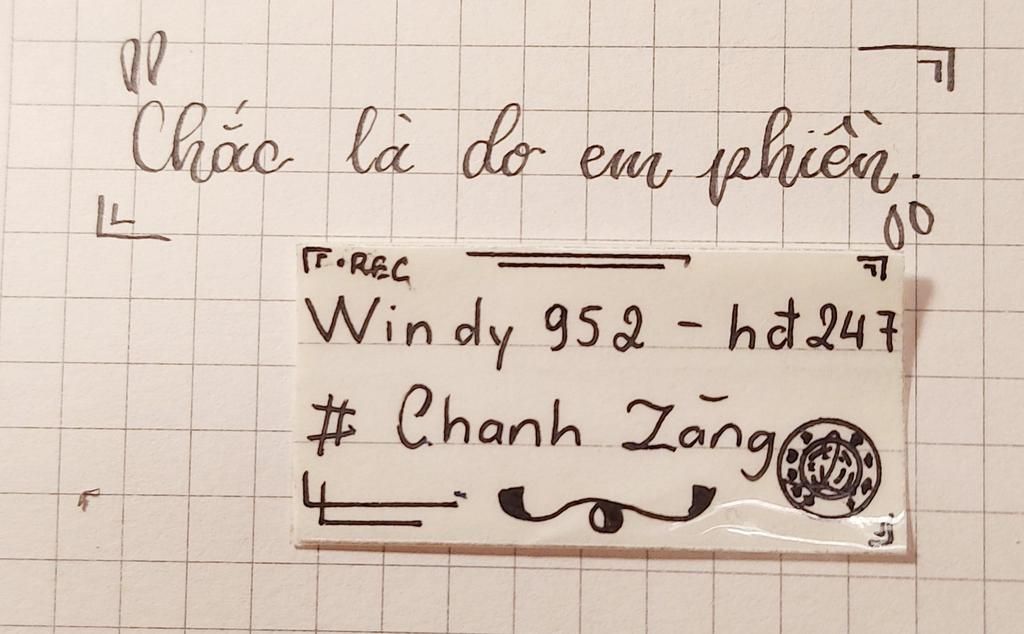 "Chắc là do em phiền."
• REC
Windy 952 - hđ247
# Chanh Zāng